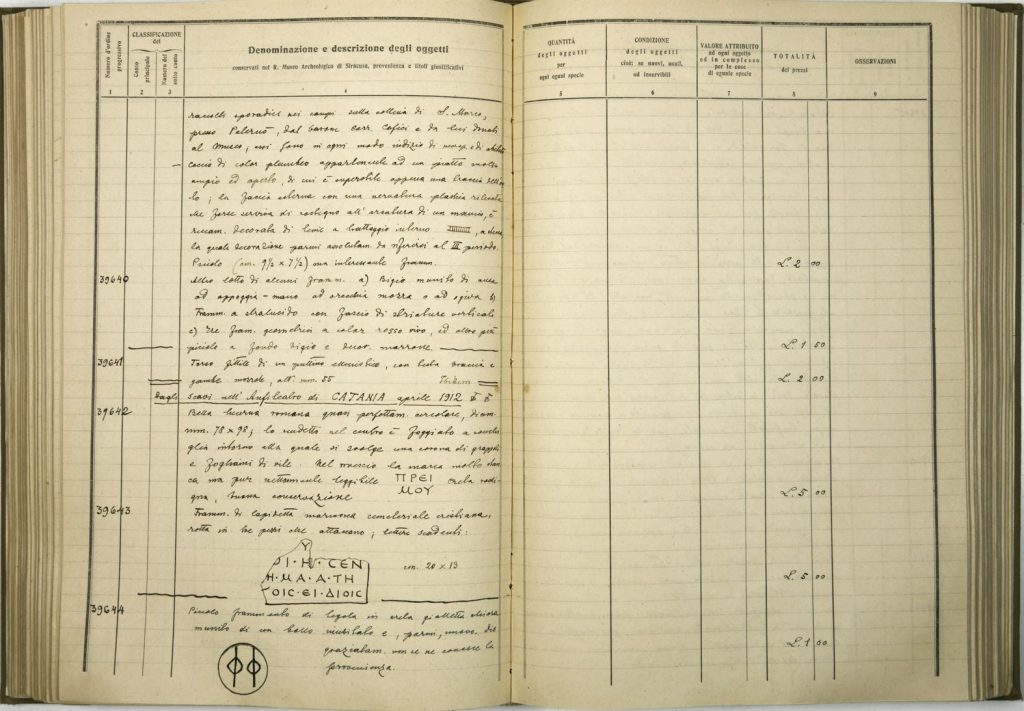 Numero d'ordine progressivo
CLASSIFICAZIONE del
Conto principale
Numero del sotto conto
Denominazione e descrizione degli oggetti
conservati nel R. Museo Archeologico di Siracusa, provenienza e titoli giustificativi
QUANTITÀ degli oggetti per ogni specie
CONDIZIONE degli oggetti cioè: se nuovi, usati, od inservibili
VALORE ATTRIBUITO ad ogni oggetto ed in complesso per le cose di eguale specie
TOTALITÀ dei prezzi
OSSERVAZIONI
1 2 3 4 5 6 7 8 9
raccolti sporadici nei campi sulla collina di S. Marco,
presso Palernò, dal barone Corr. Cafici e da lui donati
al Museo; essi sono in ogni modo indizio di
coccio di color plumbeo appartenente ad un piatto molto
ampio ed aperto, di cui è superstite appena una traccia dell'or
lo; la faccia esterna con una nervatura plastica rilevata
che forse serviva di sostegno all' arcatura di un manico, è
riccam. decorata di linee a tratteggio interno
la quale decorazione parmi assolutam. da riferirsi al III periodo.
Piccolo (cm. 9½ x 7½) ma interessante framm.
L. 2 00
39640
Altro lotto di alcuni framm. a) Bigio munito di ansa
ad appoggia-mano ad orecchia mozza o ad ogiva b)
Framm. a stralucido con fascio di striature verticali
c) tre fram. geometrici a color rosso vivo, ed altro più
piccolo a fondo bigio e decor. marrone.
L. 1 50
39641
Torso fittile di un puttino ellenistico, con testa braccia e
gambe mozze, alt. mm. 55
L. 2 00
Dagli scavi nell' Anfiteatro di CATANIA aprile 1912
39642
Bella lucerna romana quasi perfettam. circolare, diam.
mm. 78 x 98; lo scudetto nel centro è foggiato a conchi
glia intorno alla quale si svolge una corona di grappoli
e fogliami di vite. Nel rovescio la marca molto stan
ca ma pur nettamente leggibile ΠΡΕΙ
ΜΟΥ creta rodi
gna, buona conservazione
L. 5 00
39643
Framm. di lapidetta marmorea cemeteriale cristiana,
rotta in tre pezzi che attaccano; lettere scadenti:
Υ
ΟΙ·Η·CΕΝ
Η·ΜΑ·Α·ΤΗ
ΟΙC·ΕΙ·ΔΙΟΙC
cm. 20 x 13
L. 5 00
39644
Piccolo frammento di tegola in creta gialletta chiara
munito di un bollo mutilato e, parmi, nuovo. Dis
graziatam. non se ne conosce la
provenienza.
L. 1 00